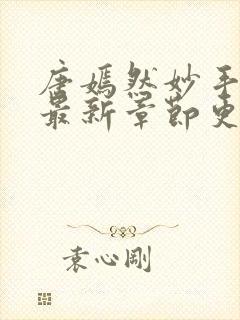 唐嫣然妙手
最新章节更
袁心刚